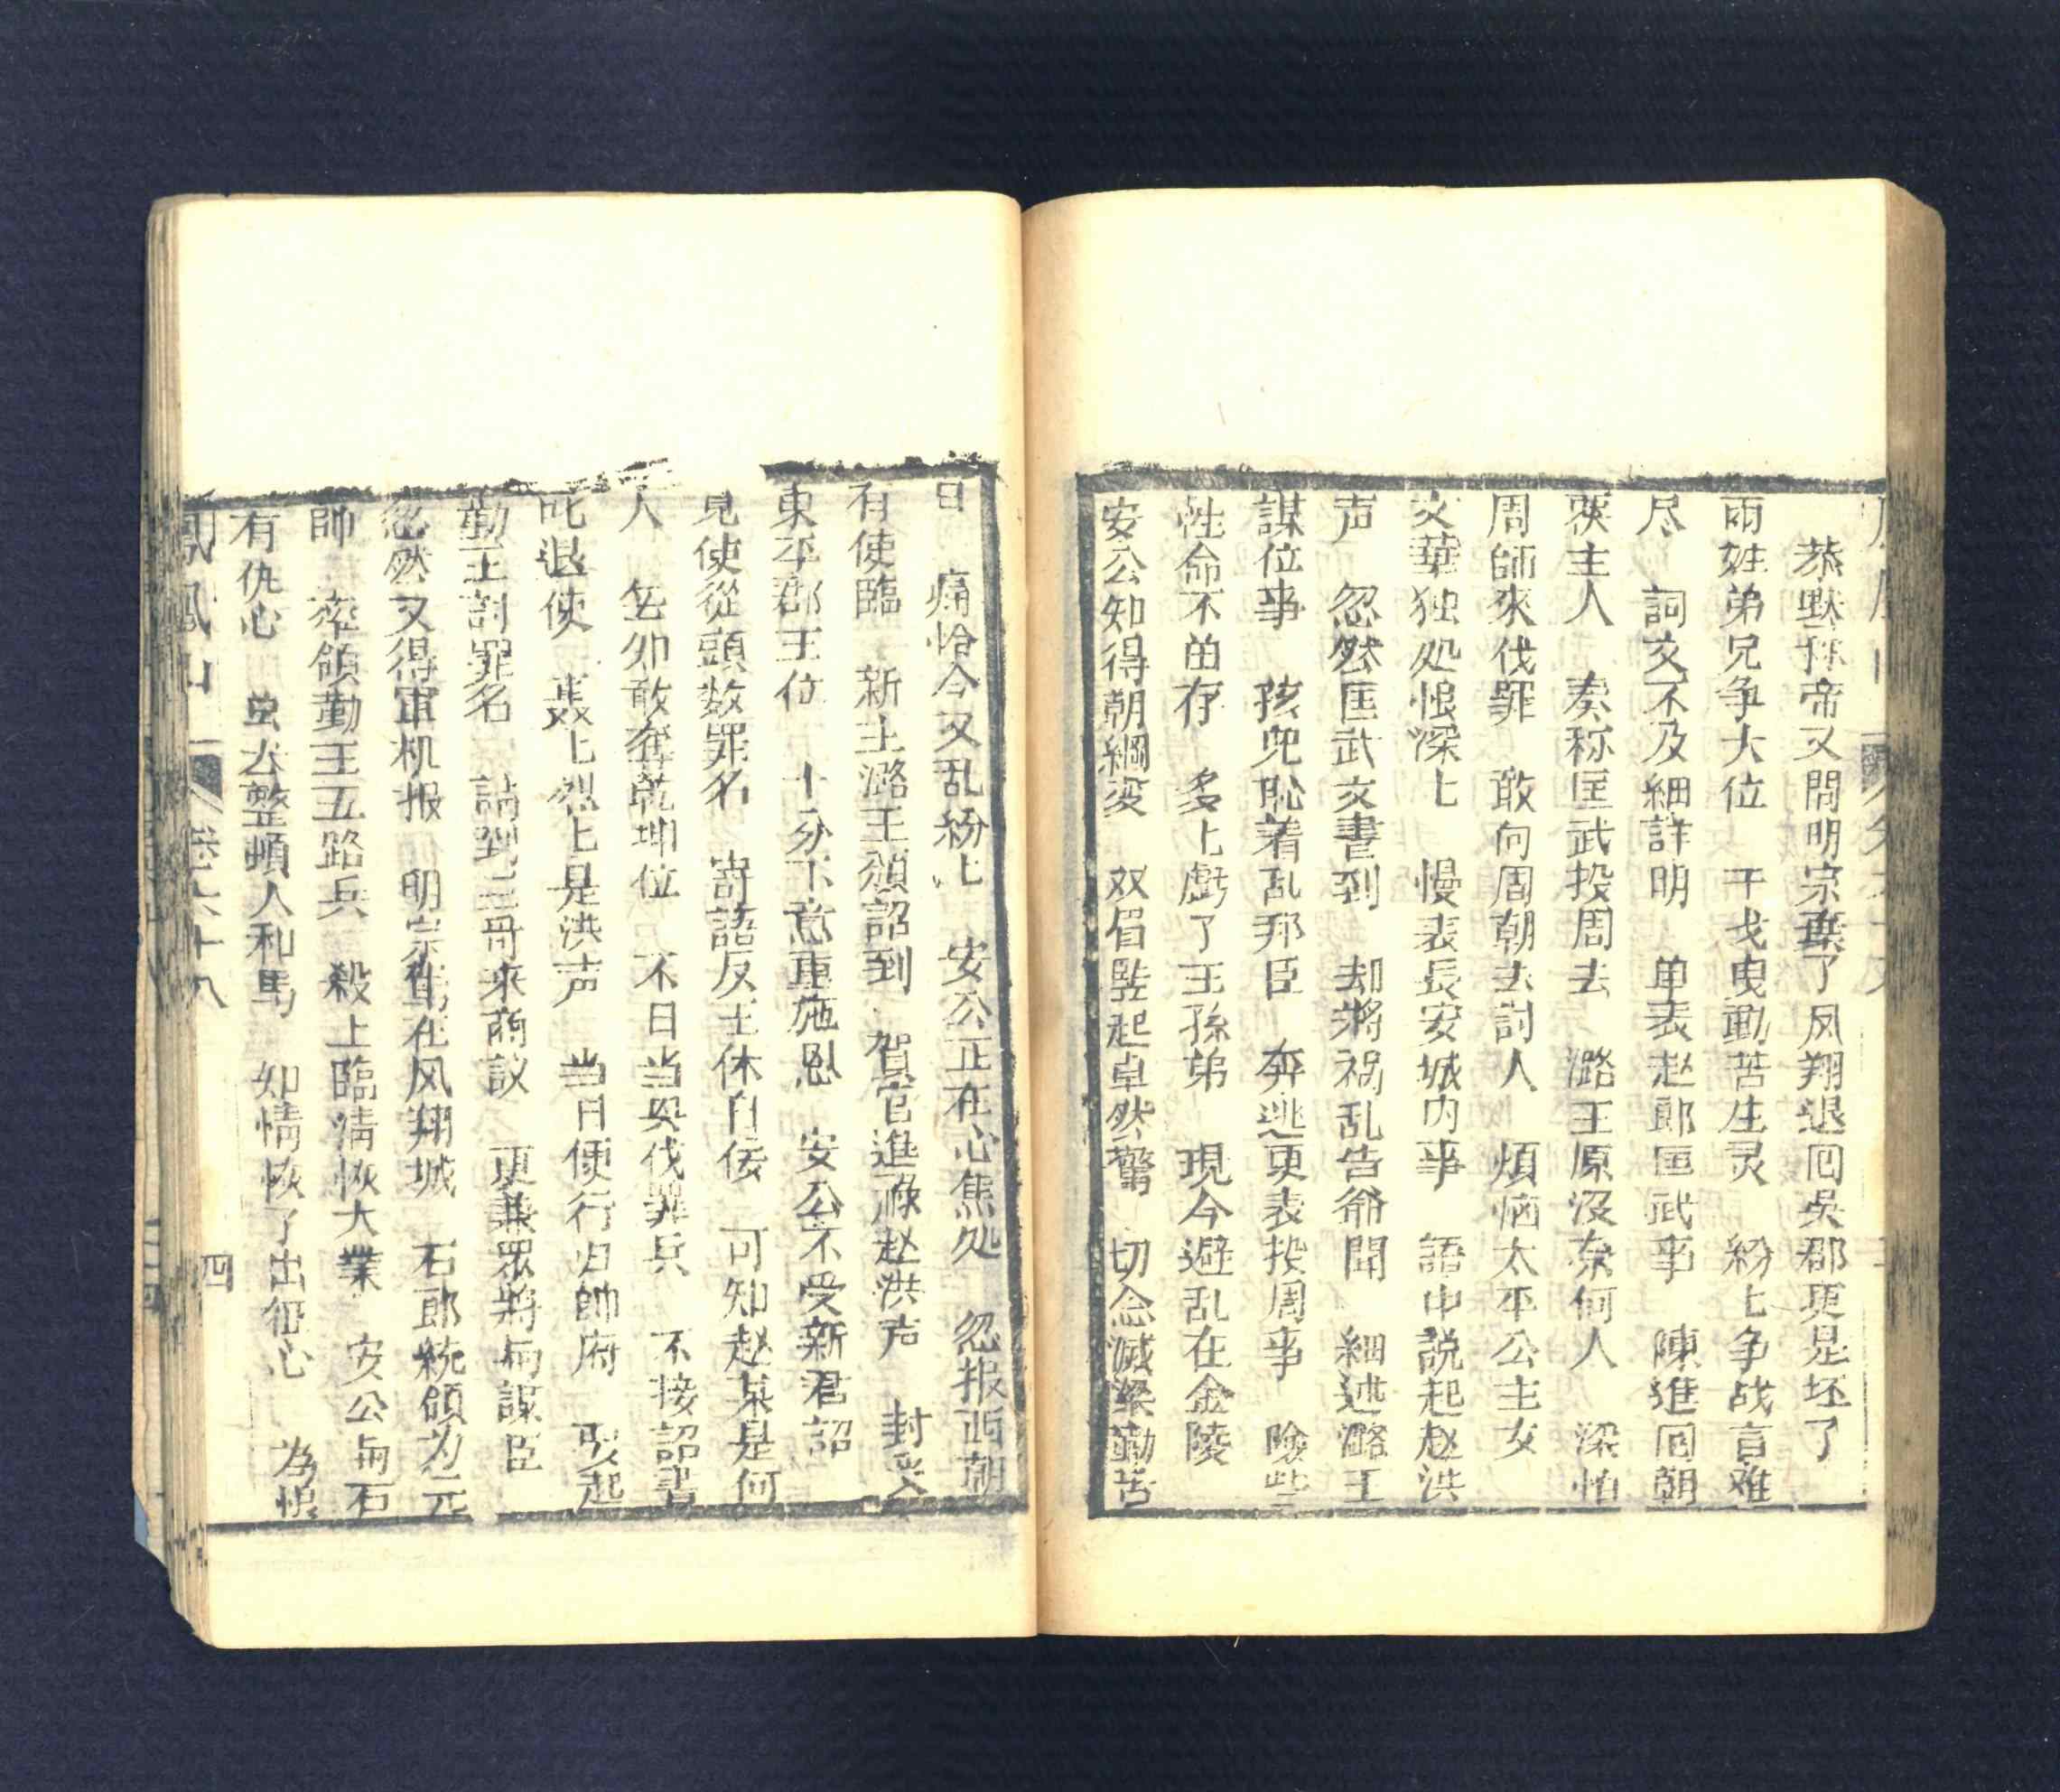 恭默称帝又聞明宗棄了凤翔退囘吳郡更是坯了
兩姓弟兄争大位　干戈曳動苦生灵　紛匕争战言难
尽　詞文不及細詳明　单表赵郎匡武事　陳進囘朝
主人　奏称匡武投周去　潞王原没奈何人　深怕
周師來伐罪　敢向周朝去討人　煩恼太平公主女
文華独処恨深匕　慢表長安城内事　語中説起赵洪
声　忽然匡武文書到　却將祸乱告爺聞　細述潞王
謀位事　孩兒恥着乱邦臣　奔逃更表投周事　險些
性命不苗存　多匕虧了王孫弟　現今避乱在金陵
安公知得朝綱変　双眉竪起卓然驚　切念滅梁勤苦
日　痛恰今又乱紛匕　安公正在心焦処　忽报西朝
有使臨　新主潞王頒詔到　賀官進祿赵洪声　封受
東平郡王位　十分不意重施恩　安公不受新君詔
見使從頭数罪名　寄語反王休自倿　可知赵某是何
人　怎卯敢奪乾坤位　不日当兴伐罪兵　不接詔書
叱退使　轰匕烈匕是洪声　当日便行归帥府　驭起
勤王討罪名　請到三哥來商议　更兼眾將与謀臣
忽然又得軍机报　明宗駕在凤翔城　石郎統領为元
帥　率領勤王五路兵　殺上臨清恢大業　安公与石
有仇心　且去整頓人和馬　如情恢了出征心　為恨
鳳凰山　卷六十八　四